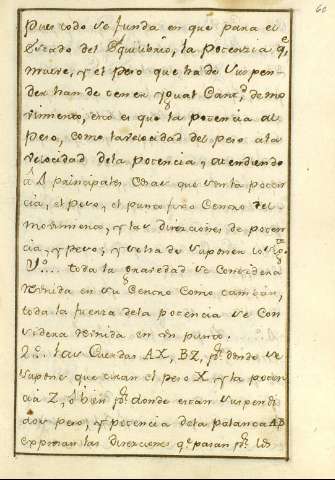 60
pues todo se funda en que para el
Estado del Equilibrio, la potencia q.e
mueve, y el peso que ha de suspen-
der han de tener igual Cant.d de mo
vimiento, esto es que la potencia al
peso, como la velocidad del peso a la
velocidad de la potencia, y atendiendo
a principales cosas que son la poten
cia, el peso, el punto fijo o Centro del
movimiento, y las direcciones de poten
cia, y peso; y se ha de suponer lo sig.te
1.o toda la gravedad se considera
reunida en su Centro como tambien,
toda la fuerza de la potencia se con
sidera reunida en un punto.
2.o las Cuerdas AX, BZ, p.r donde se
supone que tiran el peso X, y la poten
cia Z, o bien p.r donde estan suspendi
dos peso, y potencia de la palanca AB
expresan las direcciones q.e pasan p.r los